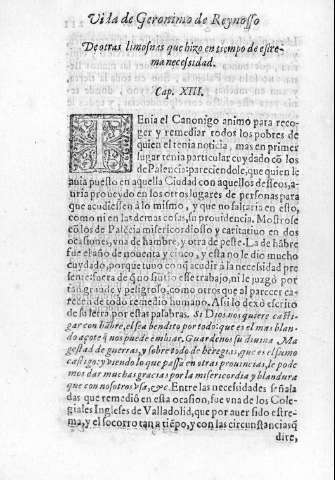 Vida de Geronimo de Reynosso
De otras limosnas que hizo en tiempo de estre-
ma necesidad.
Cap. XIII.
TEnia el Canonigo animo para reco-
ger y remediar todos los pobres de
quien el tenia noticia, mas en primer
lugar tenia particular cuydado cõ los
de Palencia: pareciendole, que quien le
auia puesto en aquella Ciudad con aquellos desseos, a-
uria proueydo en los otros lugares de personas para
que acudiessen a lo mismo, y que no faltaria en esto,
como ni en las demas cosas, su prouidencia. Mostrose
cõ los de Palẽcia misericordioso y caritatiuo en dos
ocasiones, vna de hambre, y otra de peste. La de hãbre
fue el año de nouenta y cinco, y esta no le dio mucho
cuydado, porque tuuo con acudir à la necesidad pre
sente: fuera de que sintio este trabajo, ni le juzgò por
tan grande y peligroso, como otros que al parecer ca-
recen de todo remedio humano. Assi lo dexò escrito
de su letra por estas palabras. Si Dios nos quiere casti-
gar con hãbre, el sea bendito por todo: que es el mas blan-
do açote q̃ nos puede embiar. Guardenos su diuina Ma
gestad de guerras, y sobre todo de heregias, que es el sumo
castigo: y viendo lo que passa en otras prouincias, se pode
mos dar muchas gracias por la misericordia y blandura
que con nosotros vsa, &c. Entre las necesidades señala
das que remediò en esta ocasion, fue vna de los Cole-
giales Ingleses de Valladolid, que por auer sido estre-
ma, y el socorro tan a tiẽpo, y con las circunstancias q̃
dirè,